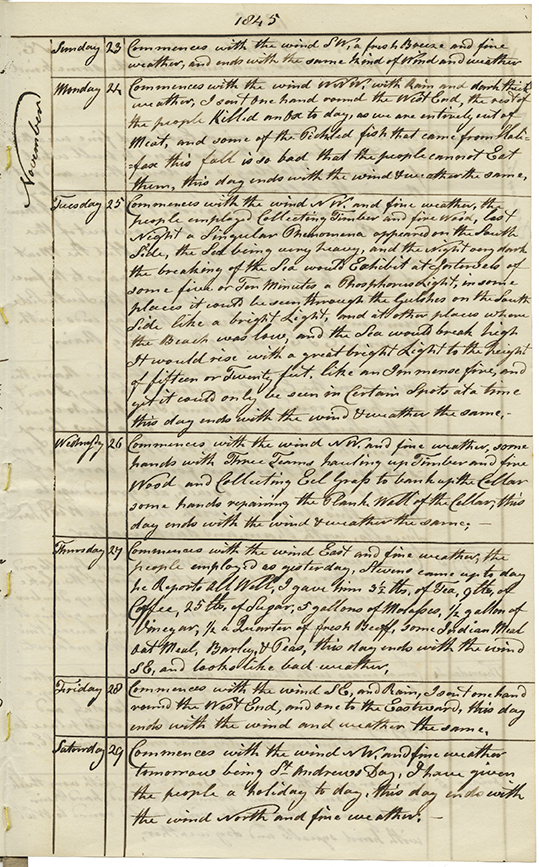 1845
November
Sunday 23 Commences with the wind SW, a fresh Breeze and fine
weather, and ends with the same kind of Wind and weather
Monday 24 Commences with the wind WNW. with Rain and dark thick
weather, I sent One hand round the West End, the rest of
the people Killed an Ox to day, as we are entirely out of
Meat, and some of the Pickled fish that came from Hali-
-fax this fall is so bad that the people cannot Eat
them, this day ends with the wind & weather the same,
Tuesday 25 Commences with the wind NW. and fine weather, the
people employed Collecting Timber and fire Wood, last
Night a Singular Phenomena appeared on the South
Side, the Sea being very heavy, and the Night very dark
the breaking of the Sea would Exhibit at Intervels of
some five or Ten Minutes a Phosphorus Light, in some
places it could be seen through the Gulches on the South
Side like a bright Light, and at other places where
the Beach was low, and the Sea would break high
It would rise with a great bright Light to the height
of fifteen or Twenty feet. like an Immense fire, and
yet it could only be seen in Certain Spots at a time
this day ends with the wind & weather the same,-
Wednesdy 26 Commences with the wind NW. and fine weather, some
hands with Three Teams hauling up Timber and fire
Wood and Collecting Eel Grass to bank up the Cellar
some hands repairing the Plank Wall of the Cellar, this
day ends with the wind & weather the same; -
Thursday 27 Commences with the wind East and fine weather, the
people employed as yesterday, Stevens came up to day
he Reports All Well, I gave him 3½ lbs. of Tea, 9 lbs, of
Coffee, 25 lbs, of Sugar, 5 gallons of Molasses, ½ gallon of
Vinegar, ½ a Quarter of fresh Beef, some Indian Meal
Oat Meal, Barley, & Peas, this day ends with the wind
SE, and looks like bad weather,
Friday 28 Commences with the wind SE, and Rain, I sent one hand
round the West End, and one to the Eastward, this day
ends with the wind and weather the same,
Saturday 29 Commences with the wind NW. and fine weather
tomorrow being St. Andrews Day, I have given
the people a holiday to day, this day ends with
the wind North and fine weather; -